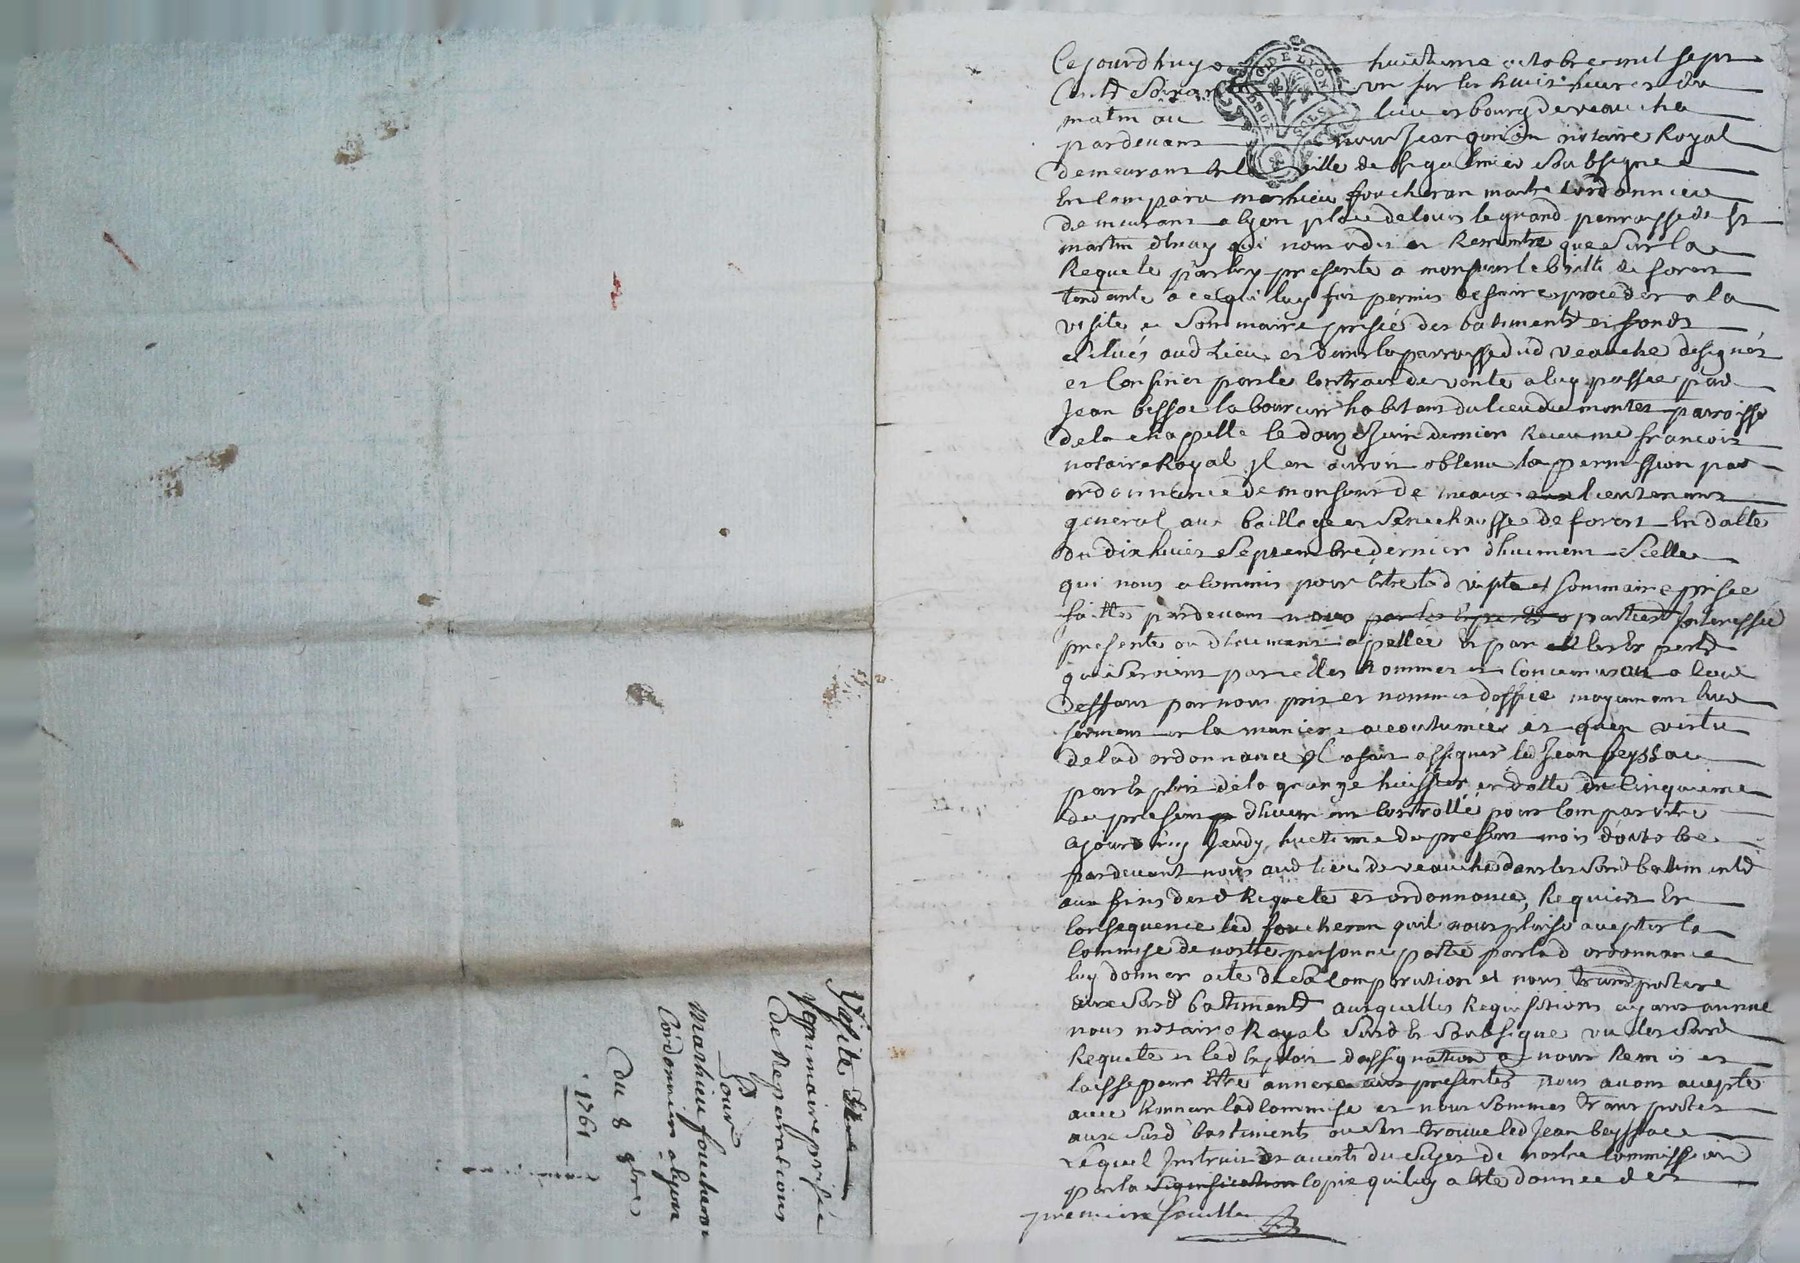 Visite et
sommaire prisée
de Reparations
Pour
Mathieu foucheran
Cordonnier a lyon
Du 8 8bre
1761
Cejourdhuy huictieme octobre mil sept
Cent Soixante un sur les huit heures du
matin au lieu et bourg de veauche
pardevant nous Jean notaire Royal
demeurant en la ville de St galmier Soubsigné
En Compara mathieu foucheran maitre Cordonnier
demeurant a lyon place de louis le grand parroisse de St
martin d'Enay qui nous a dit et Remontré que Sur la
Requete par luy presenté a monsieur le bailli de forest
tendante a ce quil luy fut permis de faire proceder a la
visite et Sommaire prisée des batiments et fonds
situés aud lieu et dans la parroisse dud veauche designés
et Confinés par le Contract de vente a luy passée par
Jean bessac laboureur habitant du lieu de montet parroisse
de la chapelle le douze Juin dernier Receu me françois
notaire Royal il en auroit obtenu la permission par
ordonnance de monsieur de meaux lieutenant
general au bailliage et Senechaussée de forest En datte
du dix huict Septembre dernier dhuement Scellé
qui nous a Commis pour Estre lad visite et Sommaire prisée
faittes pardevant nous par les experts parties Interessée
presente ou dhuement apellée Et par les Experts
qui Seroient par elles Nommés et Convenus ou a leur
deffaut par nous pris et nommés d'office moyennant leur
serment en la maniere accoutumée et quen vertu
de lad ordonnance il a fait assigner led Jean beyssac
par Exploit de la grange huissier en datte du Cinquieme
du present dhuement Controllé pour Comparoitre
ajourdhuy Jeudy huictieme du present mois d'octobre
pardevant nous aud lieu de veauche dans les Susd batiments
aux fins desd Requete et ordonnance, Requiert En
Consequence led foucheran quil nous plaise accepter la
Commise de nostre personne portée par lad ordonnance
luy donner acte de Sa Comparution et nous transporter
aux Susd batiments auxquelles Requisitions ayant
nous notaire Royal Susd Et Soubsigné vu les Susd
Requete et led Exploit dassignation a nous Remis et
laissé pour Etre annexé aux presentes nous avons accepté
avec honneur lad Commise et nous Sommes transportés
aux Susd bastiments ou Sest trouvé led Jean beyssac
Lequel Instruit et averti du Sujet de nostre Commission
par la Signification Copie qui luy a Eté donnée des
premiere feuille